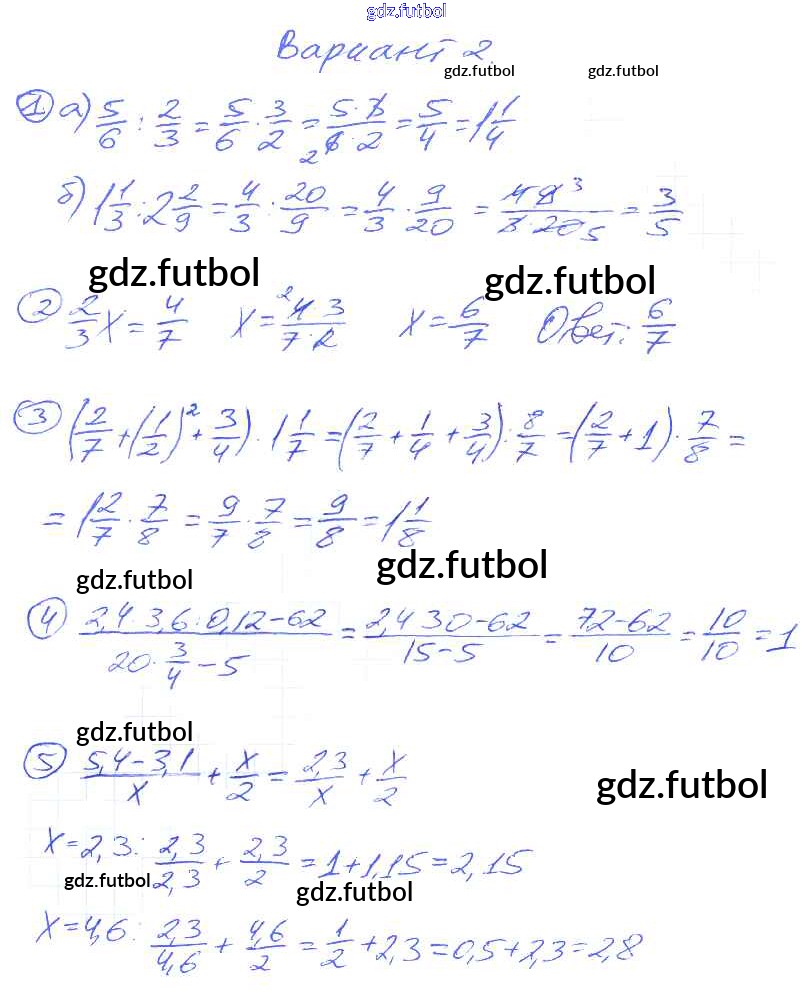 gdz.futbol
Вариант 2.
gdz.futbol gdz.futbol
① а) 5/6 : 2/3 = 5/6 · 3/2 = 5·3/6·2 2 = 5/4 = 1 1/4
б) 1 1/3 : 2 2/9 = 4/3 : 20/9 = 4/3 · 9/20 = 4 9 3/3·20 5 = 3/5
gdz.futbol gdz.futbol
② 2/3 x = 4/7 x = 2 4·3/7·2 x = 6/7 Ответ: 6/7
③ (2/7 + (1/2)² + 3/4) · 1 1/7 = (2/7 + 1/4 + 3/4) : 8/7 = (2/7 + 1) · 7/8 =
= 1 2/7 · 7/8 = 9/7 · 7/8 = 9/8 = 1 1/8
gdz.futbol
gdz.futbol
④ 2,4·3,6:0,12-62/20·3/4-5 = 2,4 30-62/15-5 = 72-62/10 = 10/10 = 1
gdz.futbol
⑤ 5,4-3,1/x + x/2 = 2,3/x + x/2
gdz.futbol
x=2,3: 2,3/2,3 + 2,3/2 = 1+1,15=2,15
gdz.futbol
gdz.futbol
x=4,6: 2,3/4,6 + 4,6/2 = 1/2 + 2,3=0,5+2,3=2,8